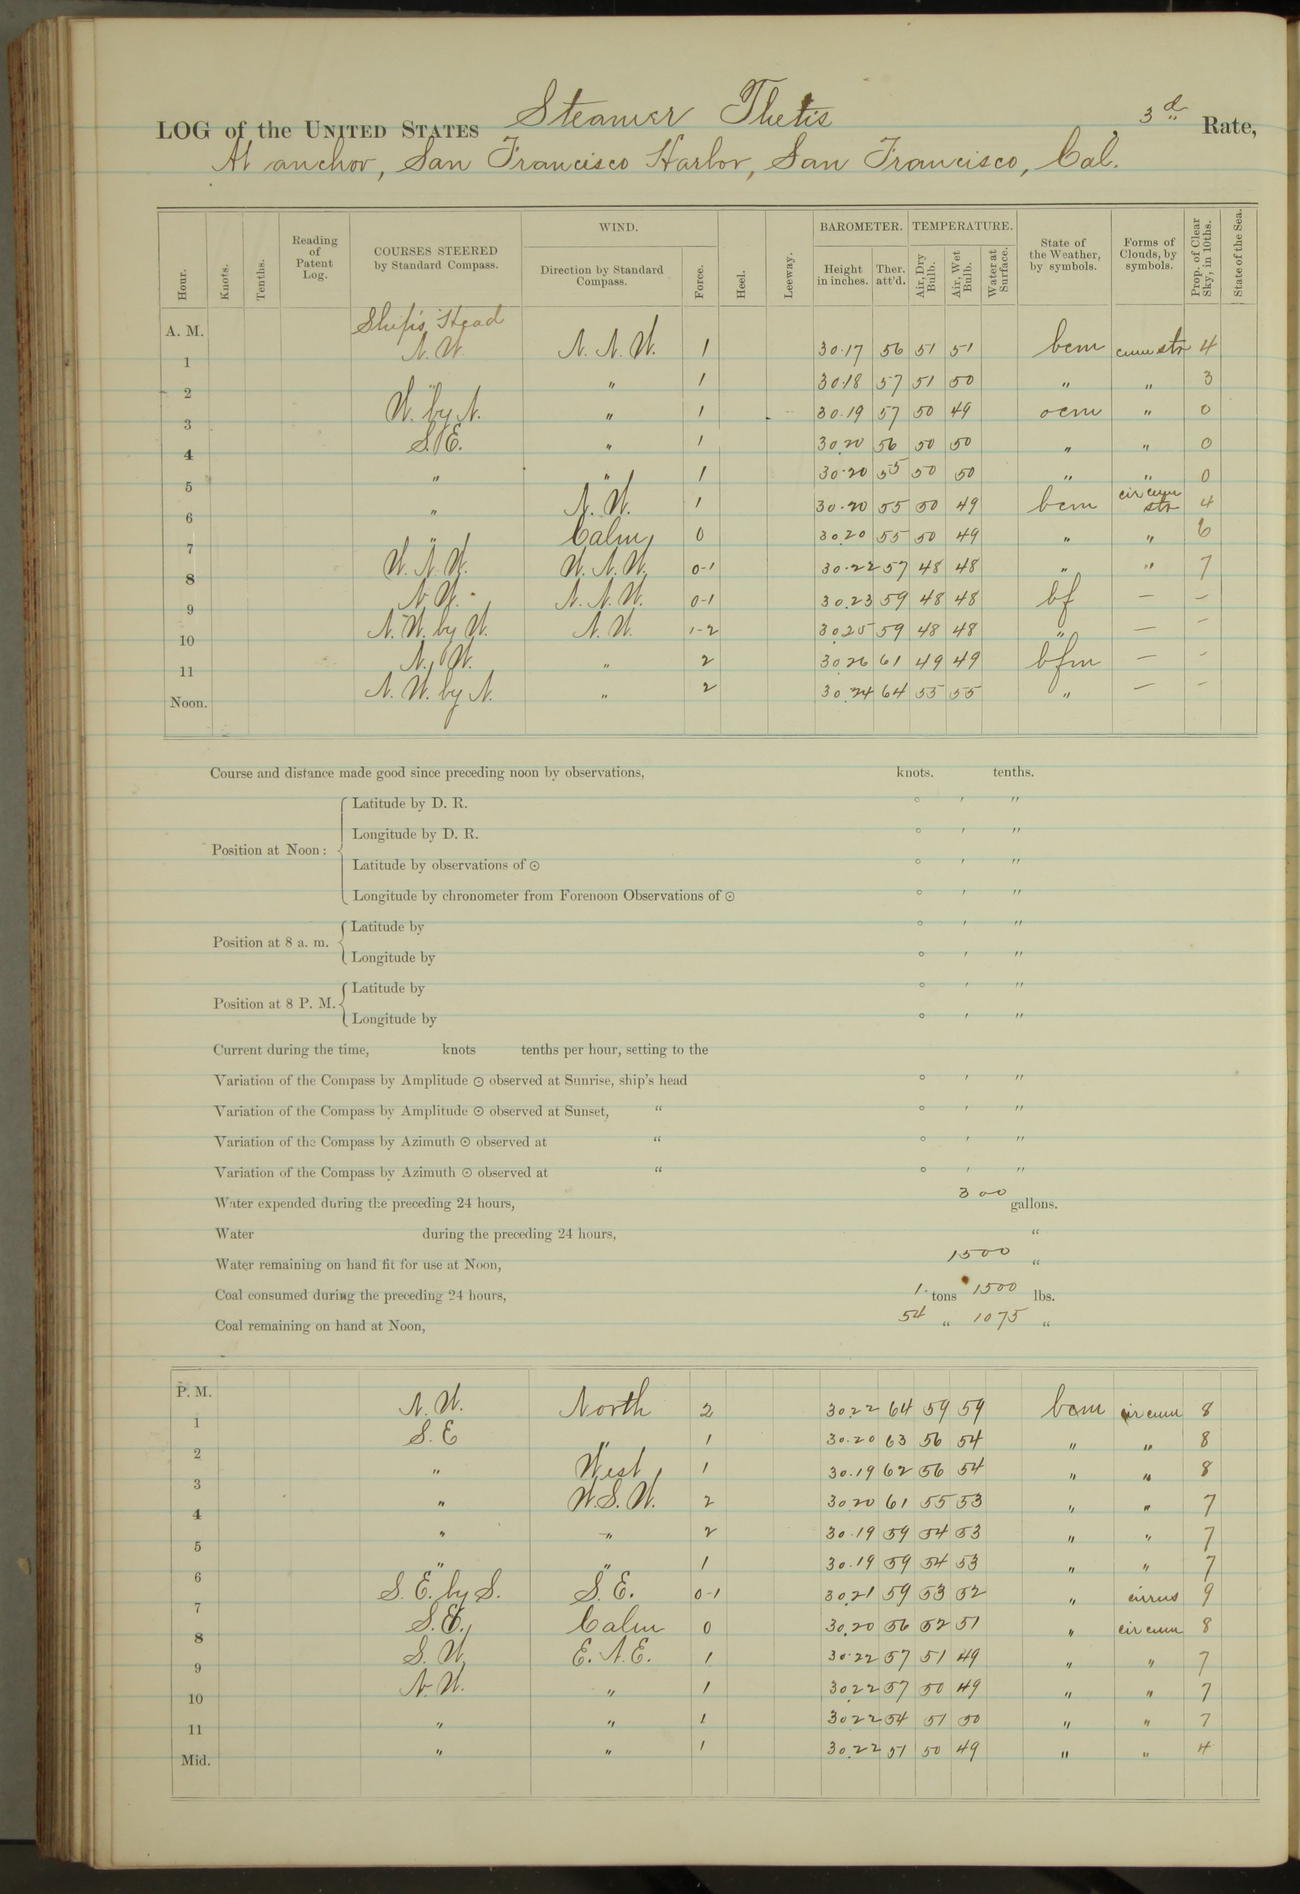 LOG of the UNITED STATES Steamer Thetis 3d Rate,
At anchor, San Francisco Harbor, San Francisco, Cal.
Hour. Knots. Tenths. Reading of Patent Log. COURSES STEERED by Standard Compass. WIND. Direction by Standard Compass. Force. Heel. Leeway. BAROMETER. Height in inches. Ther. att'd. TEMPERATURE. Air, Dry Bulb. Air, Wet Bulb. Water at Surface. State of the Weather, by symbols. Forms of Clouds, by symbols. Prop. of Clear Sky, in 10ths. State of the Sea.
A. M. Ship's Head
1 N.W. N.N.W. 1 30.17 56 51 51 bcm cum str 4
2 " " 1 30.18 57 51 50 " " 3
3 W. by N. " 1 30.19 57 50 49 ocm " 0
4 S.E. " 1 30.20 56 50 50 " " 0
5 " " 1 30.20 55 50 50 " " 0
6 " N.W. 1 30.20 55 50 49 bcm cir cum str 4
7 " Calm 0 30.20 55 50 49 " " 6
8 W.N.W. W.N.W. 0-1 30.22 57 48 48 " " 7
9 N.W. N.N.W. 0-1 30.23 59 48 48 bf — —
10 N.W. by W. N.W. 1-2 30.25 59 48 48 " — —
11 N.W. " 2 30.26 61 49 49 bfm — —
Noon. N.W. by N. " 2 30.24 64 55 55 " — —
Course and distance made good since preceding noon by observations, knots. tenths.
Position at Noon: Latitude by D. R. ° ′ ″
Longitude by D. R. ° ′ ″
Latitude by observations of ⊙ ° ′ ″
Longitude by chronometer from Forenoon Observations of ⊙ ° ′ ″
Position at 8 a. m. Latitude by ° ′ ″
Longitude by ° ′ ″
Position at 8 P. M. Latitude by ° ′ ″
Longitude by ° ′ ″
Current during the time, knots tenths per hour, setting to the
Variation of the Compass by Amplitude ⊙ observed at Sunrise, ship's head ° ′ ″
Variation of the Compass by Amplitude ⊙ observed at Sunset, " ° ′ ″
Variation of the Compass by Azimuth ⊙ observed at " ° ′ ″
Variation of the Compass by Azimuth ⊙ observed at " ° ′ ″
Water expended during the preceding 24 hours, 300 gallons.
Water during the preceding 24 hours, "
Water remaining on hand fit for use at Noon, 1500 "
Coal consumed during the preceding 24 hours, 1. tons 1500 lbs.
Coal remaining on hand at Noon, 54 " 1075 "
P. M.
1 N.W. North 2 30.22 64 59 59 bcm cir cum 8
2 S.E " 1 30.20 63 56 54 " " 8
3 " West 1 30.19 62 56 54 " " 8
4 " W.S.W. 2 30.20 61 55 53 " " 7
5 " " 2 30.19 59 54 53 " " 7
6 " " 1 30.19 59 54 53 " " 7
7 S.E. by S. S.E. 0-1 30.21 59 53 52 " cirrus 9
8 S.E. Calm 0 30.20 56 52 51 " cir cum 8
9 S.W. E.N.E. 1 30.22 57 51 49 " " 7
10 N.W. " 1 30.22 57 50 49 " " 7
11 " " 1 30.22 54 51 50 " " 7
Mid. " " 1 30.22 51 50 49 " " 4